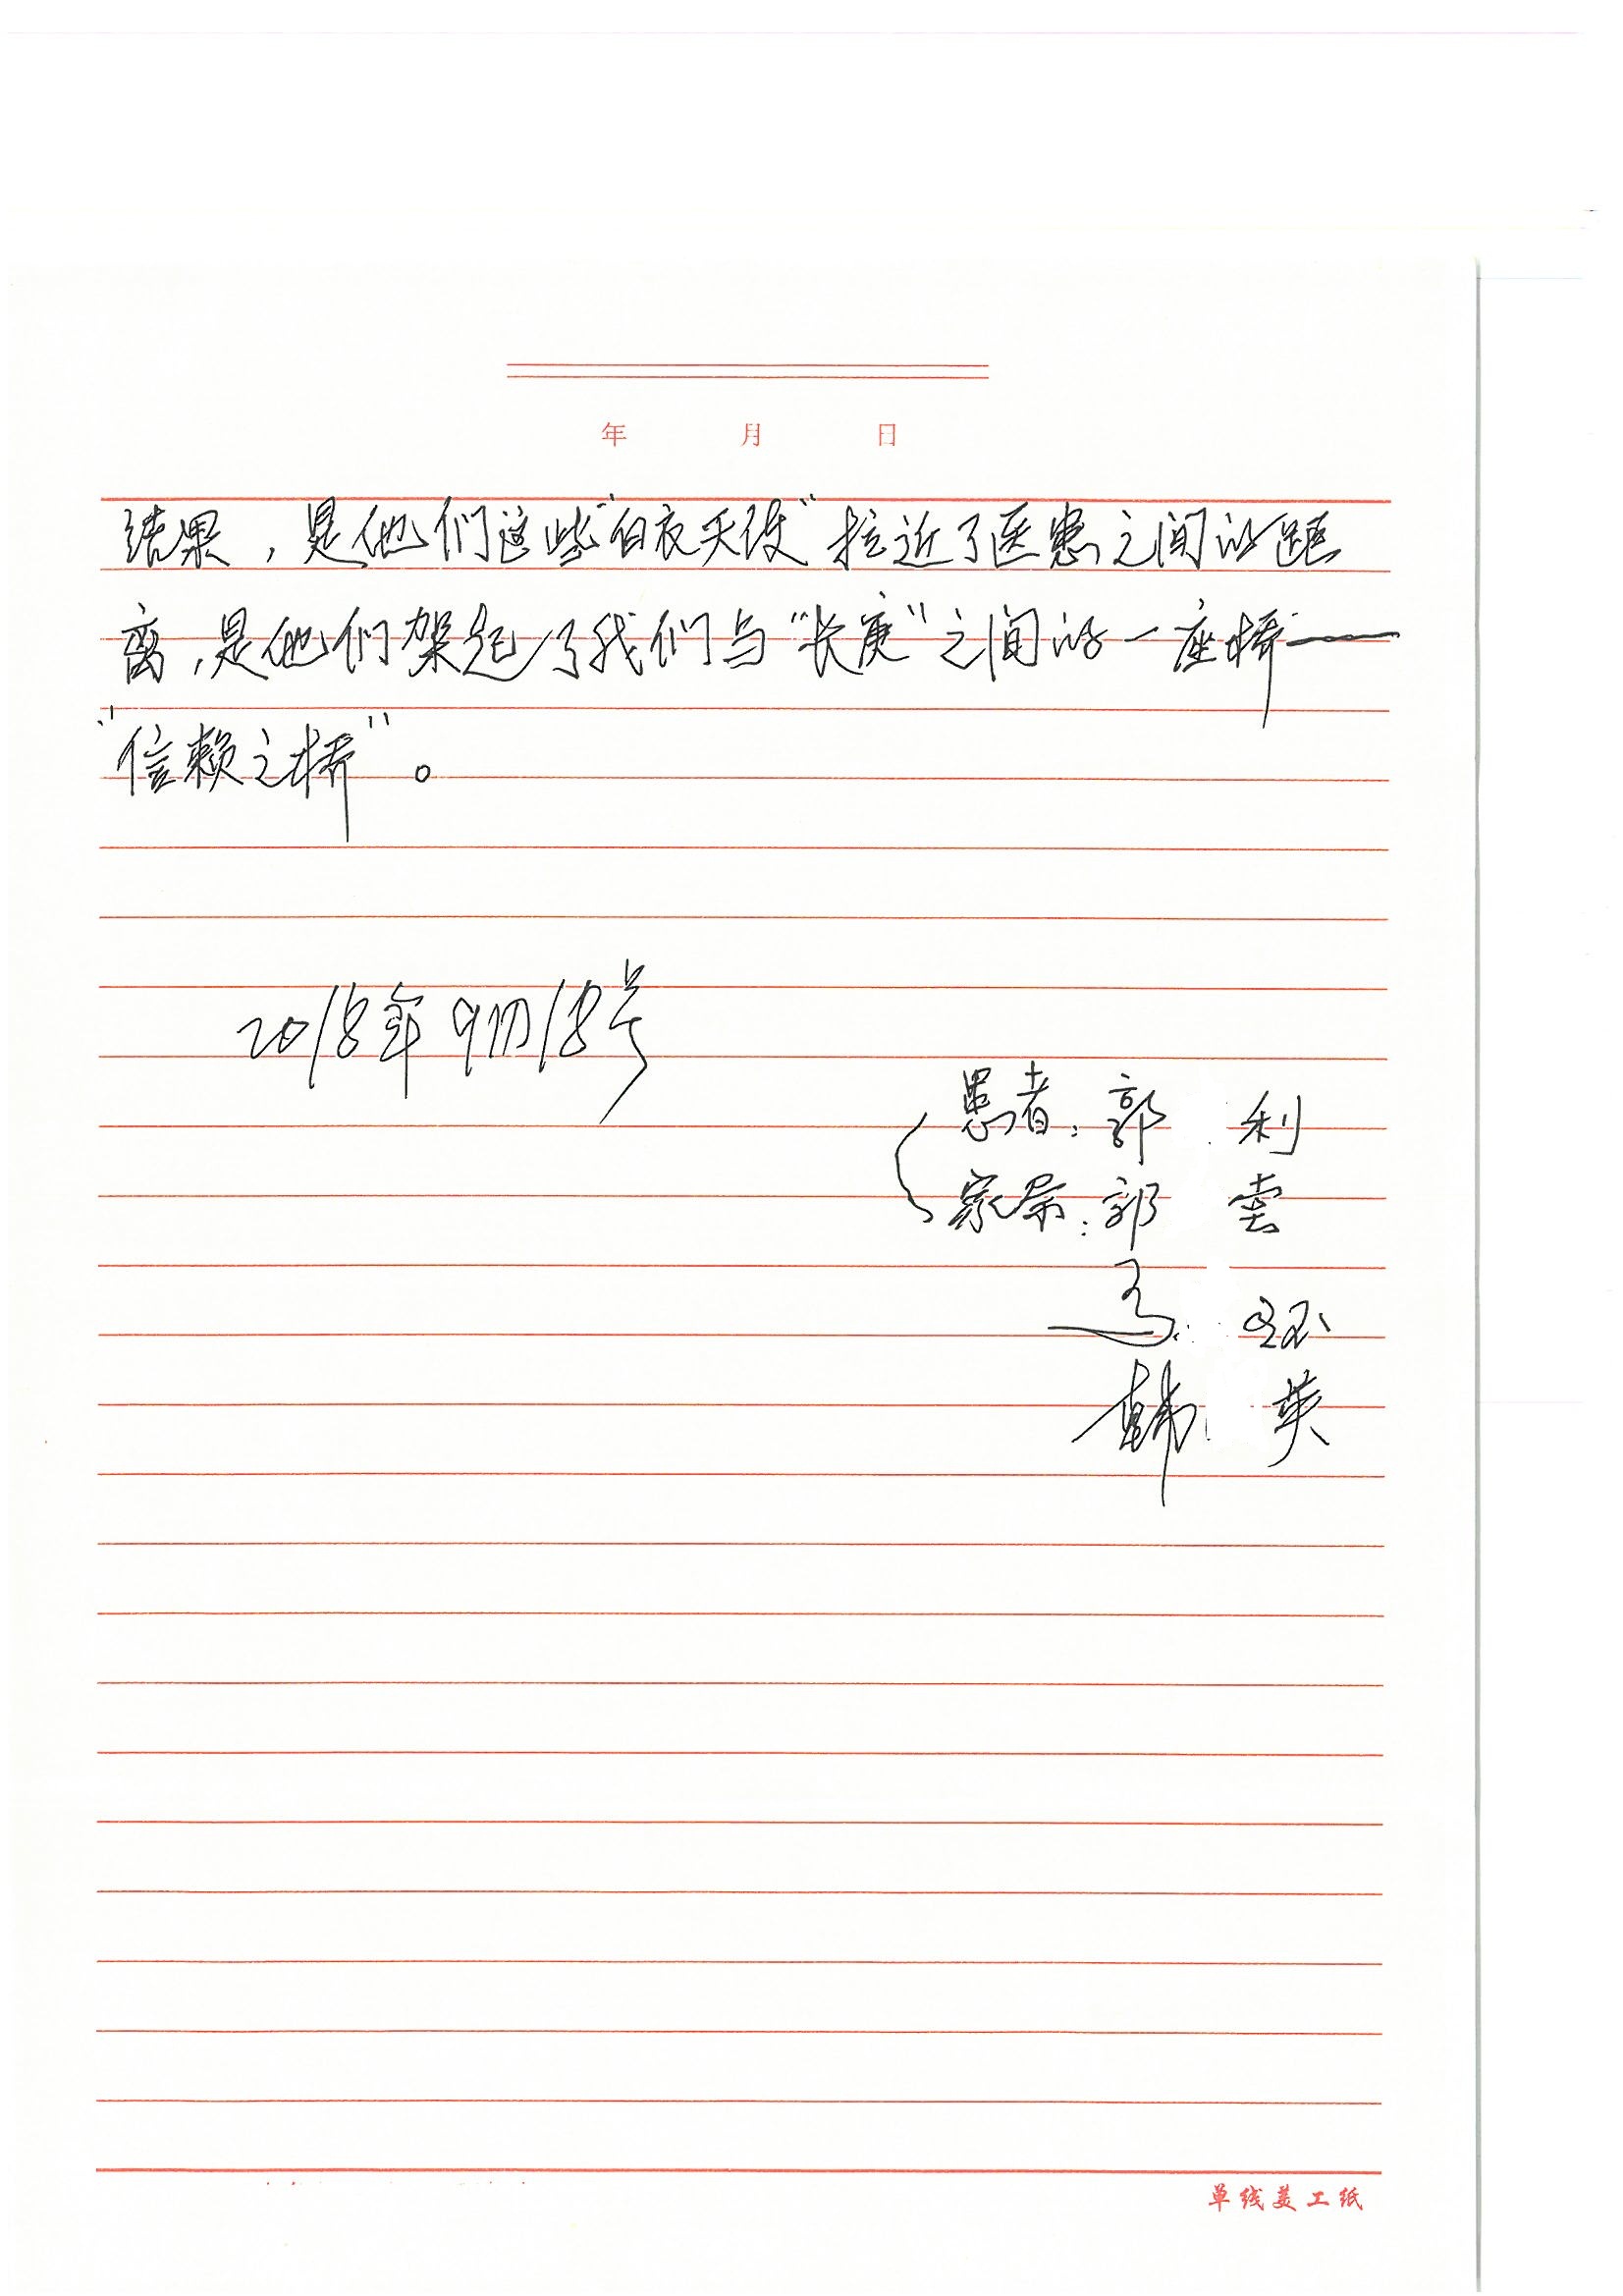 年 月 日
结果，是他们这些“白衣天使”拉近了医患之间的距
离，是他们架起了我们与“长庚”之间的一座桥——
“信赖之桥”。
2018年9月18号
患者：郭 利
家属：郭 云
马
韩 英
单线美工纸